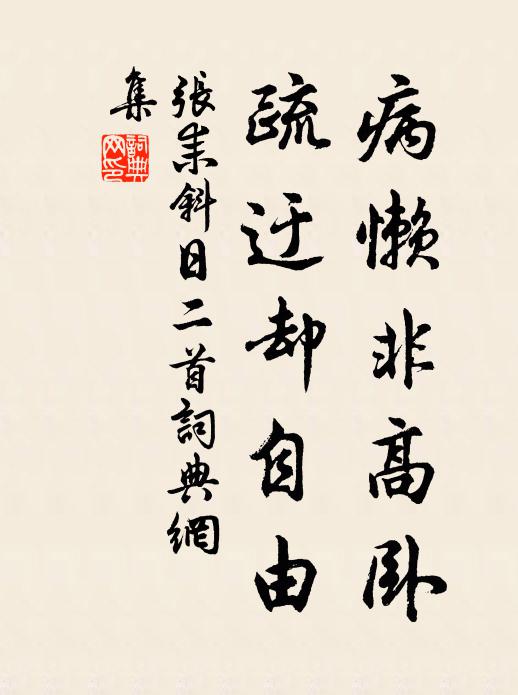 病懶非高卧
疏迂却自由
張耒斜日二首詞典網
集
詞典
网印